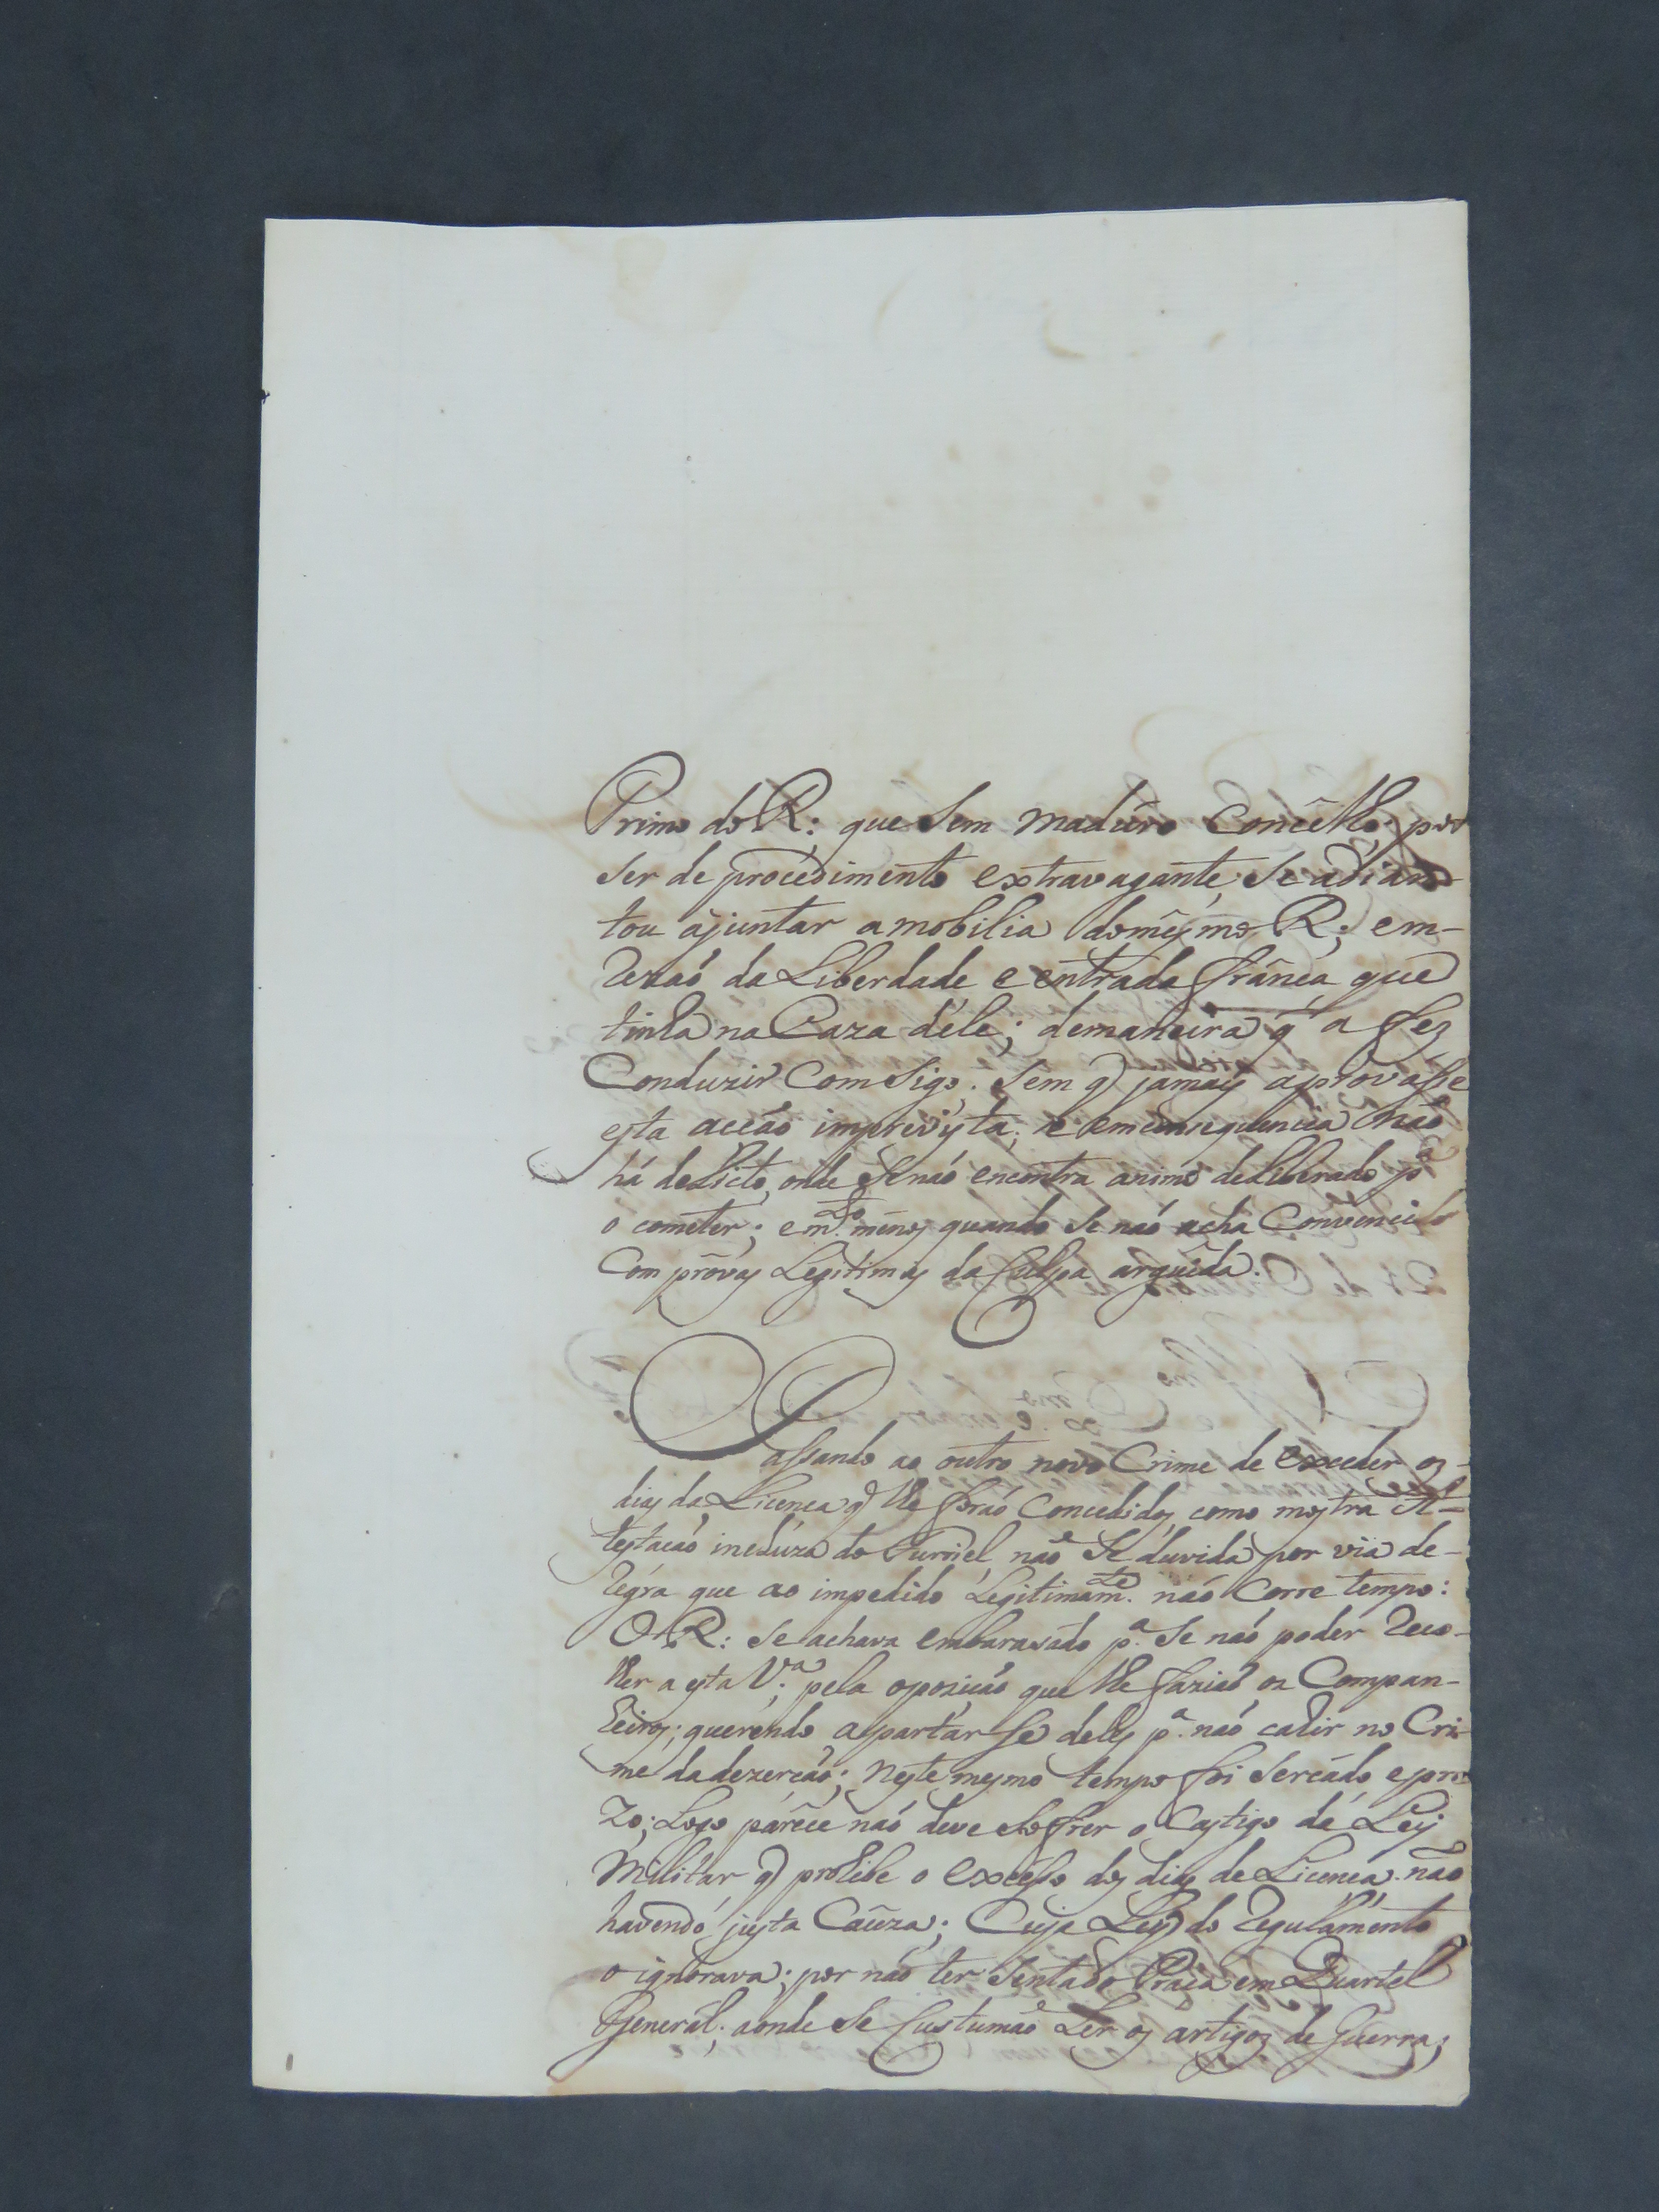 Primo do R: que Sem maduro Concêlho; por
Ser de procedimento extravagante, Se adian-
tou ajuntar a mobilia domêsmo R; em-
rezaõ da Liberdade e entrada franca que
tinha na Caza déle; demaneira q̃ a fez
Conduzir Com Sigo. Sem q̃ jamais aprovasse
esta accáo imprevista, e em consequencia náo
há delicto, onde Se náo encontra animo deliberado p.ª
o cometer; e m.to menos quando Se náo acha Convencido
Com próvas Legitimas da Culpa arguida.
Passando ao outro novo Crime de exceder os
dias da Licenca q̃ lhe foráo Concedidos como mostra At-
testacáo incluza do Furriel náo Se duvida por via de-
regra que ao impedido Legitimam.te náo Corre tempo:
O R: Se achava embarasado p.ª Se náo poder reco-
lher a esta V.ª; pela opozicáo que lhe faziáo os Compan-
heiros; querendo apartar se deles p.ª náo cahir no Cri-
me da dezercáo; neste mesmo tempo foi Sercádo e pre-
zo; Logo paréce náo deve Sofrer o Castigo da Ley
Militar q̃ prohibe o excésso dos dias de Licenca náo
havendo justa Cauza; Cuja Ley do regulamento
o ignorava; por náo ter Sentado Praca em Quartel
General; aonde Se Custumáo Ler os artigos de Guerra;